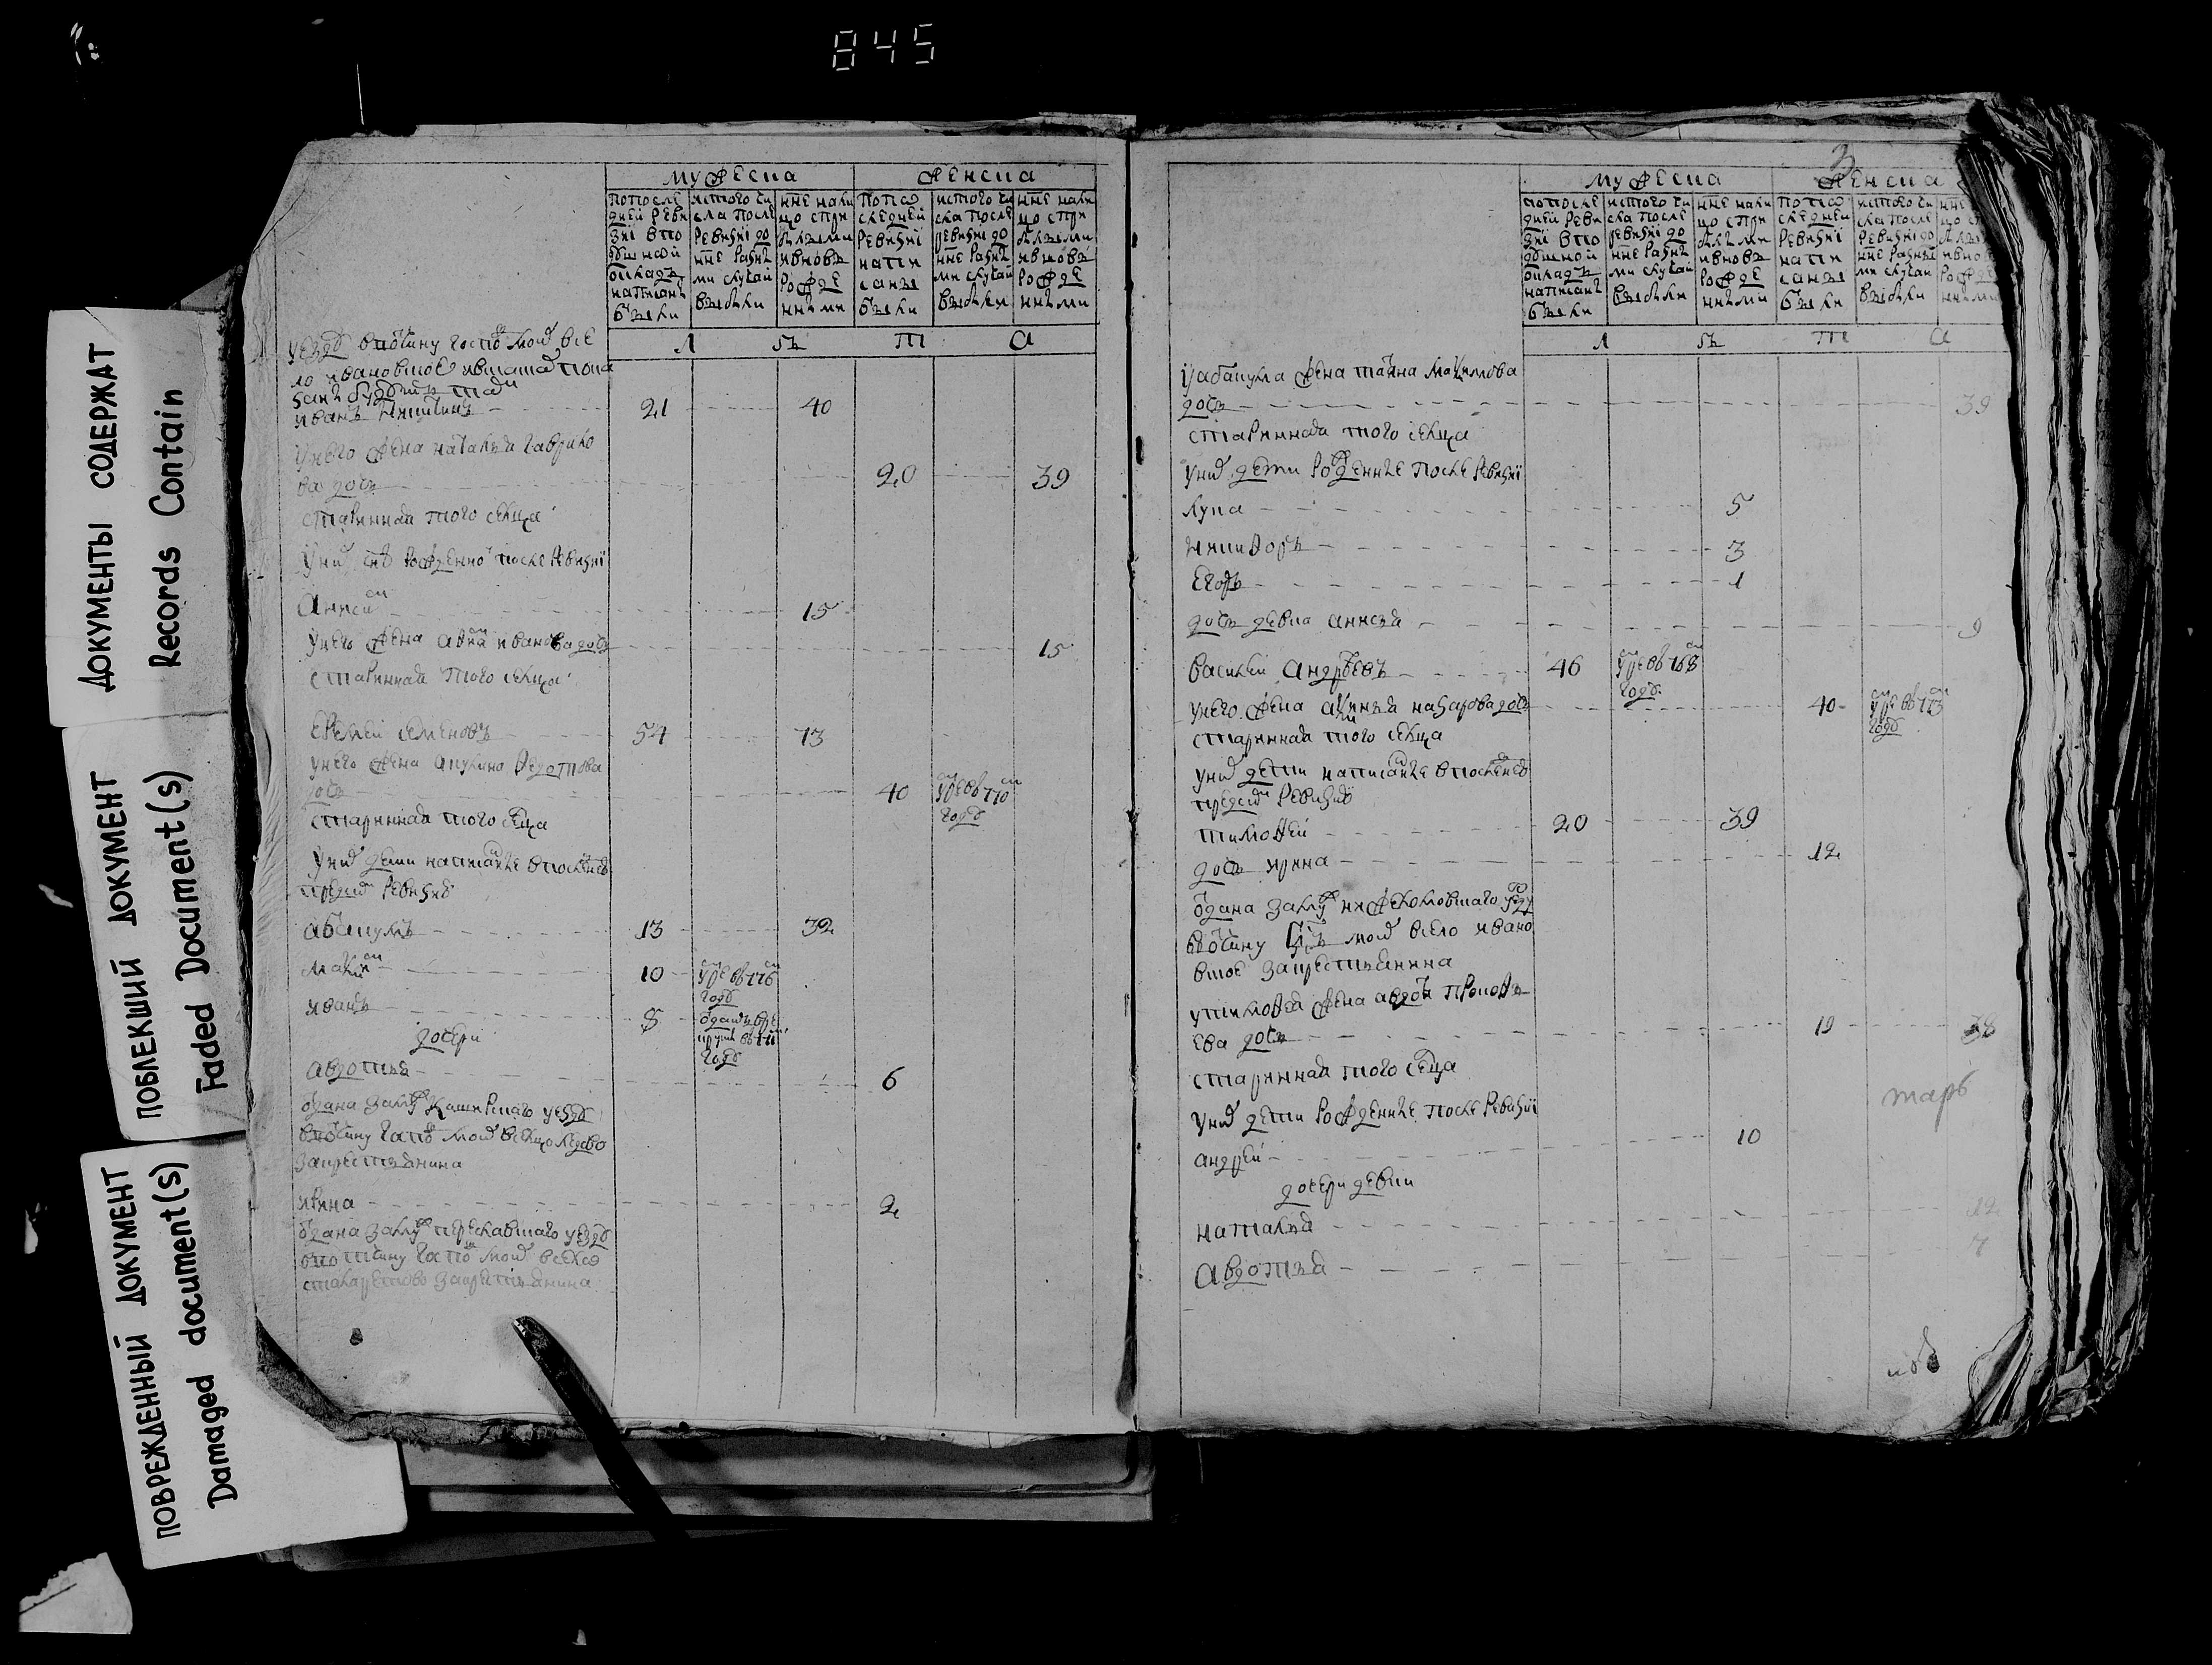 845
ДОКУМЕНТЫ СОДЕРЖАТ
Records Contain
ПОБЛЕКШИЙ ДОКУМЕНТ
Faded Document(s)
ПОВРЕЖДЕННЫЙ ДОКУМЕНТ
Damaged document(s)
мужеска женска
попосле
дней реви
зиі впо
душной
окладъ
написанн
были
истого чи
сла после
ревизиі до
нне разны
ми случаи
выбыли
нне нали
цо спри
былыми
ивновь
рожде
нными
попо
следней
ревизиі
напи
саны
были
истого чи
сла после
ревизиі до
нне разны
ми случаи
выбыли
нне нали
цо спри
былыми
ивновь
рожде
нными
л ѣ т а
уезду вотчину госпо моей все
ло ивановское
иванъ никитинъ 21 40
унего жена наталья гаврило
ва дочь 20 39
старинная того селца
уних снъ рожденной после ревизиі
15
унего жена анна иванова дочь 15
старинная того селца
еремей семеновъ 54 73
унего жена акулина федотова
дочь 40 умре в 770 году
старинная того селца
уних дети написанные впоследней
пред сей ревизией
абакумъ 13 32
максим 10 умре в 776 году
иванъ 8 отданъ в рекруты году
дочери
авдотья 6
отдана замуж каширского уезду
вотчину госпо моей вселцо
закрестьянина
ирина 2
отдана замуж переславского уезду
вотчину госпо моей вселцо
закрестьянина
3
мужеска женска
попосле
дней реви
зиі впо
душной
окладъ
написанн
были
истого чи
сла после
ревизиі до
нне разны
ми случаи
выбыли
нне нали
цо спри
былыми
ивновь
рожде
нными
попо
следней
ревизиі
напи
саны
были
истого чи
сла после
ревизиі до
нне разны
ми случаи
выбыли
нне
л ѣ т а
уабакума жена татьяна максимова
дочь 39
старинная того селца
уних дети рожденные после ревизиі
лука 5
никифоръ 3
егоръ 1
дочь девка анисья 9
василей андреевъ 46 умре в 768 году
унего жена аксинья назарова дочь 40 умре в 773 году
старинная того селца
уних дети написанные впоследней
пред сей ревизией
тимофей 20 39
дочь ирина 12
отдана замуж
вотчину моей всело ивано
вское закрестьянина
утимофея жена авдотья прокофь
ева дочь 19 38
старинная того селца
уних дети рожденные после ревизиі
андрей 10
дочери девки
наталья 12
авдотья 7